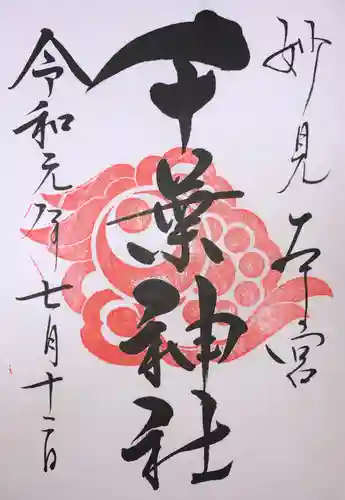 妙見本宮
千葉神社
令和元年七月十二日